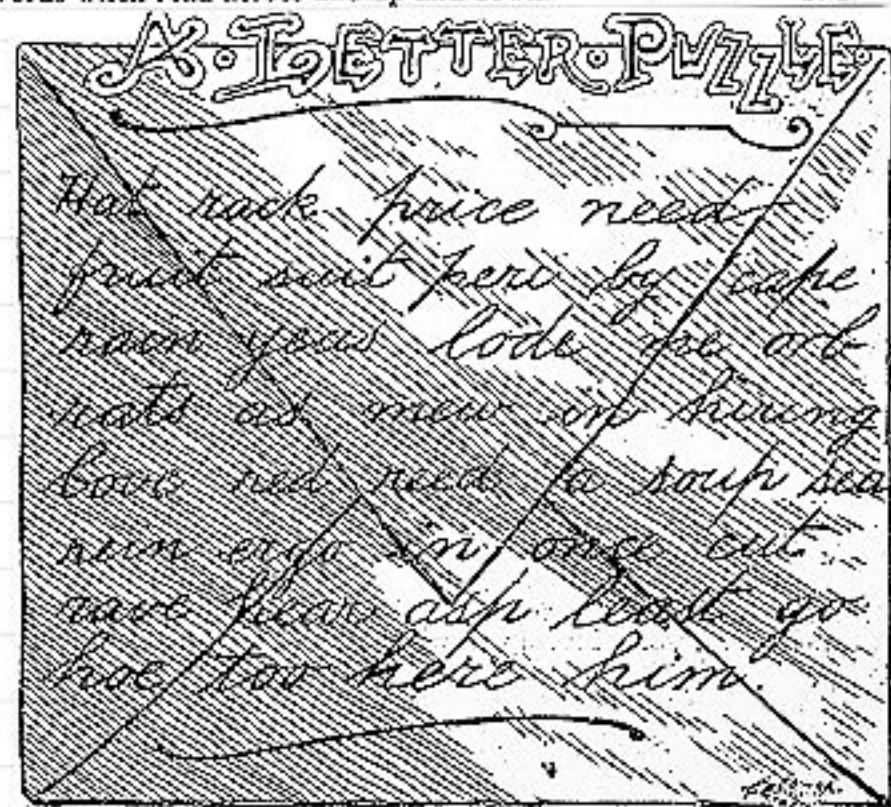 A · LETTER · PUZZLE ·
Hat rack price need
fruit suit peri by cape
rain years lode me orb
rats as mew in hiring
bove red reed a soup sea
rain ergo in once cut
rave hear asp least go
hoe too here him.